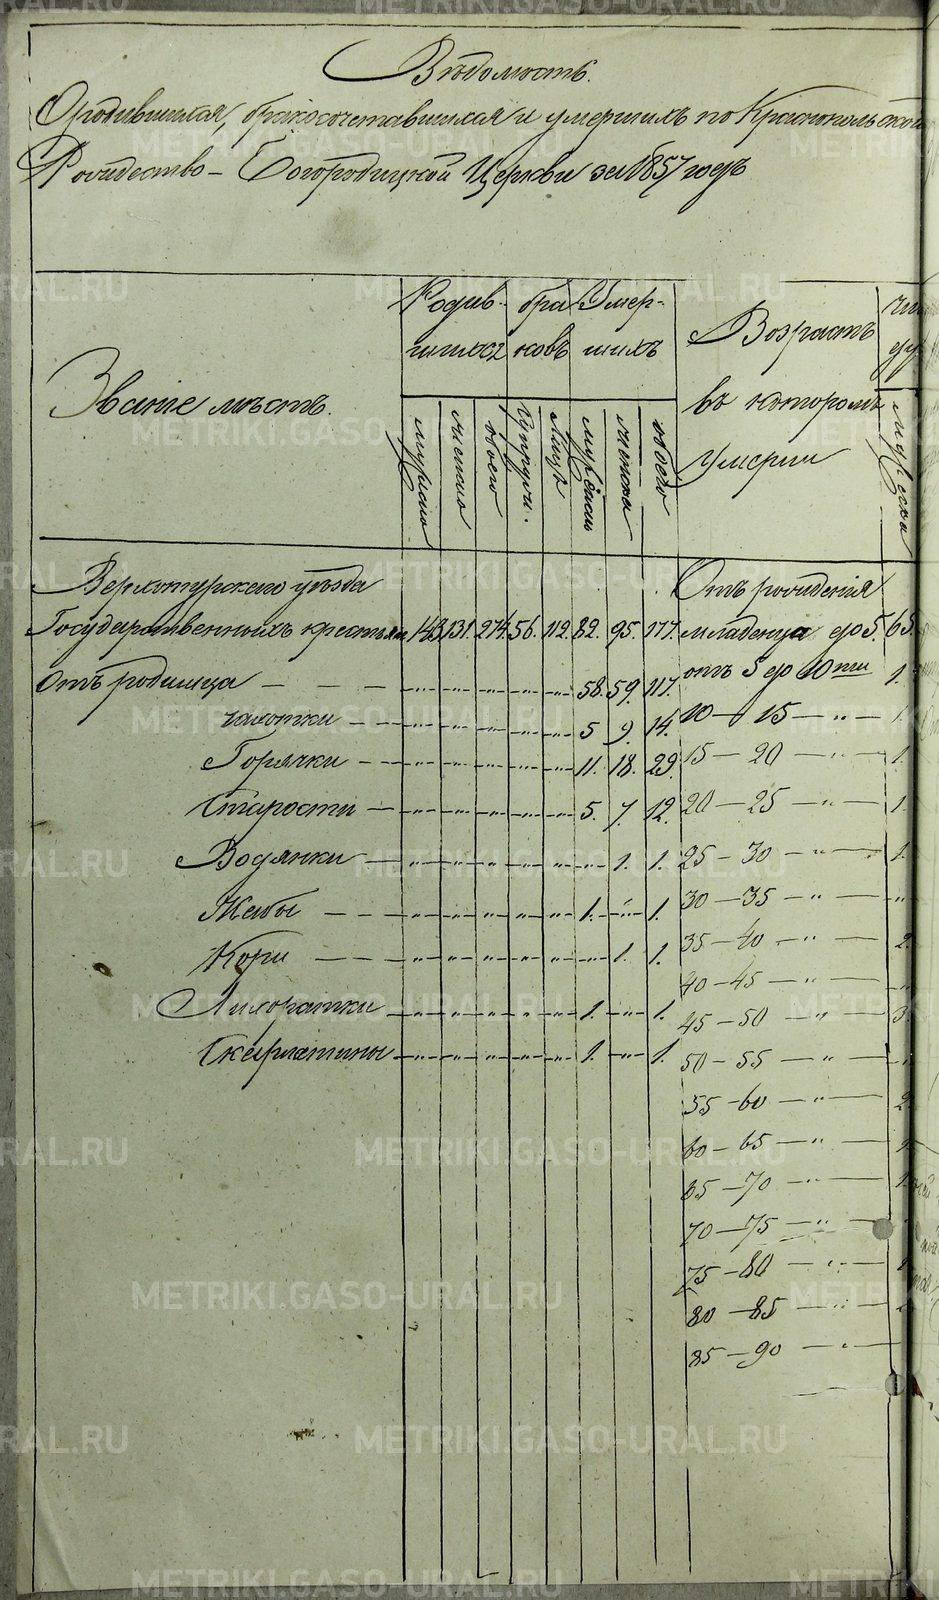 Вѣдомость.
О родившихся, бракосочетавшихся и умершихъ по Краснопольской
Рождество-Богородицкой Церкви за 1857 годъ
Званіе мѣстъ.
Родив- бра- Умер-
шихся ковъ шихъ
Возрастъ
въ которомъ
умерли
мужеска
женска
обоего
Супруж.
Лицъ
мужеска
женска
обоего
мужеска
Верхотурскаго уѣзда
Государственныхъ крестьян 143. 131. 274. 56. 112. 82. 95. 177.
Отъ родимца — — — „ „ „ „ „ 58. 59. 117.
чахотки — — „ „ „ „ „ 5 9. 14.
Горячки — — „ „ „ „ „ 11. 18. 29.
Старости — „ „ „ „ „ 5. 7. 12.
Водянки — „ „ „ „ „ „ 1. 1.
Жабы — — „ „ „ „ „ 1. „ 1.
Кори — — „ „ „ „ „ „ 1. 1.
Лихорадки — „ „ „ „ „ 1. „ 1.
Скарлатины — „ „ „ „ „ 1. „ 1.
Отъ рожденія
младенца до 5. 65.
отъ 5 до 10ти 1.
10 — 15 — „ — 1.
15 — 20 — „ — 1.
20 — 25 — „ — 1.
25 — 30 — „ — 1.
30 — 35 — „ — „
35 — 40 — „ — 2.
40 — 45 — „ — „
45 — 50 — „ — 3.
50 — 55 — „ — „
55 — 60 — „ — 2.
60 — 65 — „ —
65 — 70 — „ —
70 — 75 — „ —
75 — 80 — „ —
80 — 85 — „ —
85 — 90 — „ —
METRIKI.GASO-URAL.RU